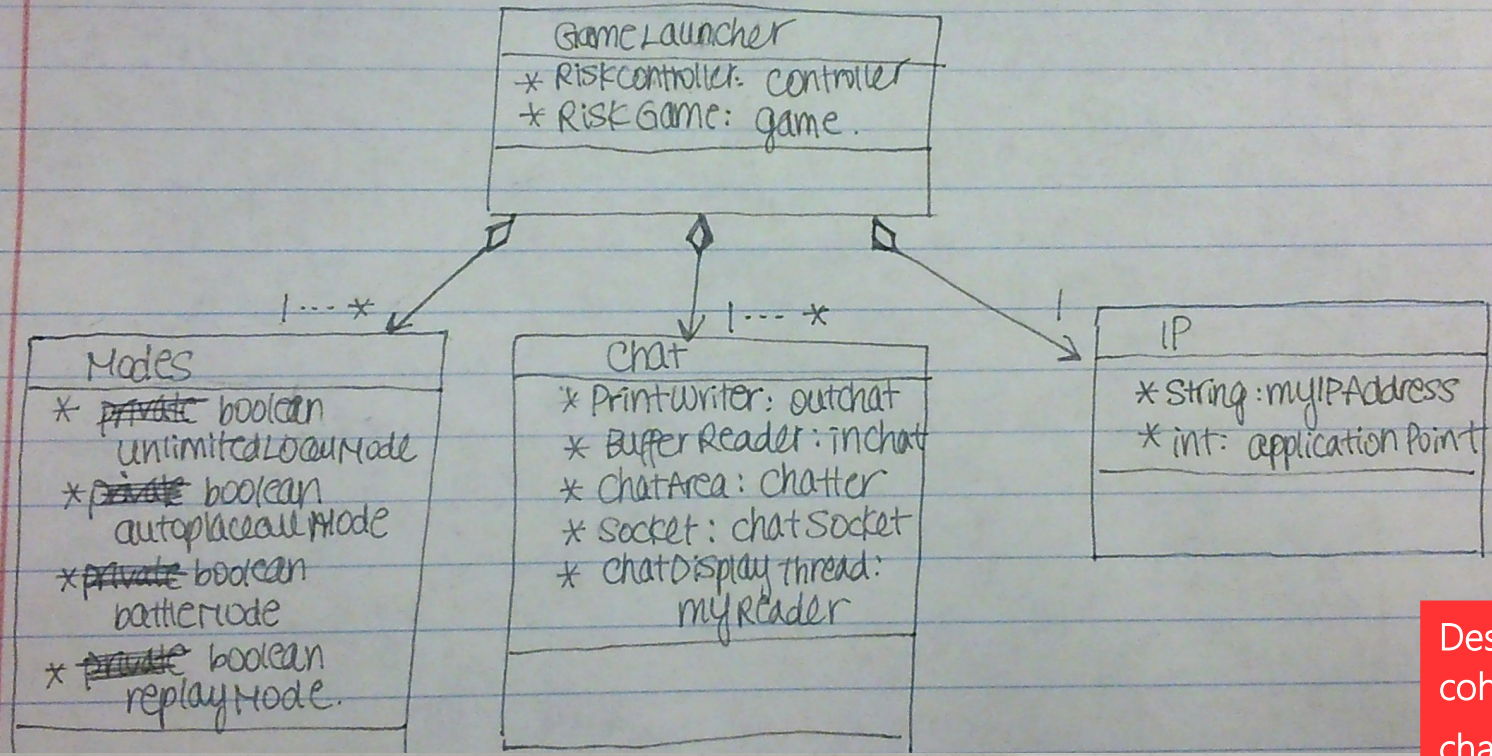 GameLauncher
* RiskController: controller
* RiskGame: game.
1---*
1---*
1
Modes
* private boolean
unlimitedLocalMode
* private boolean
autoplaceallMode
* private boolean
battleMode
* private boolean
replayMode.
Chat
* PrintWriter: outchat
* BufferReader: inchat
* ChatArea: chatter
* Socket: chatSocket
* ChatDisplayThread:
myReader
IP
* String: myIPAddress
* int: applicationPoint
Des
coh
cha